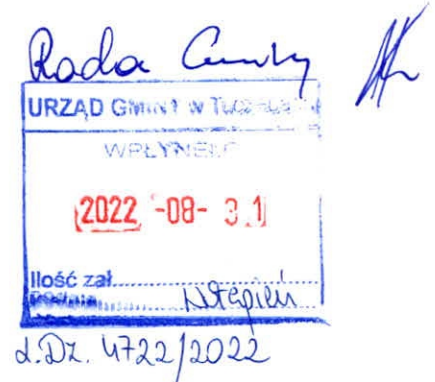 Rada Gminy
URZĄD GMINY w
WPŁYNĘŁO
2022 -08- 31
Ilość zał.
Podpis
L.Dz. 4722/2022